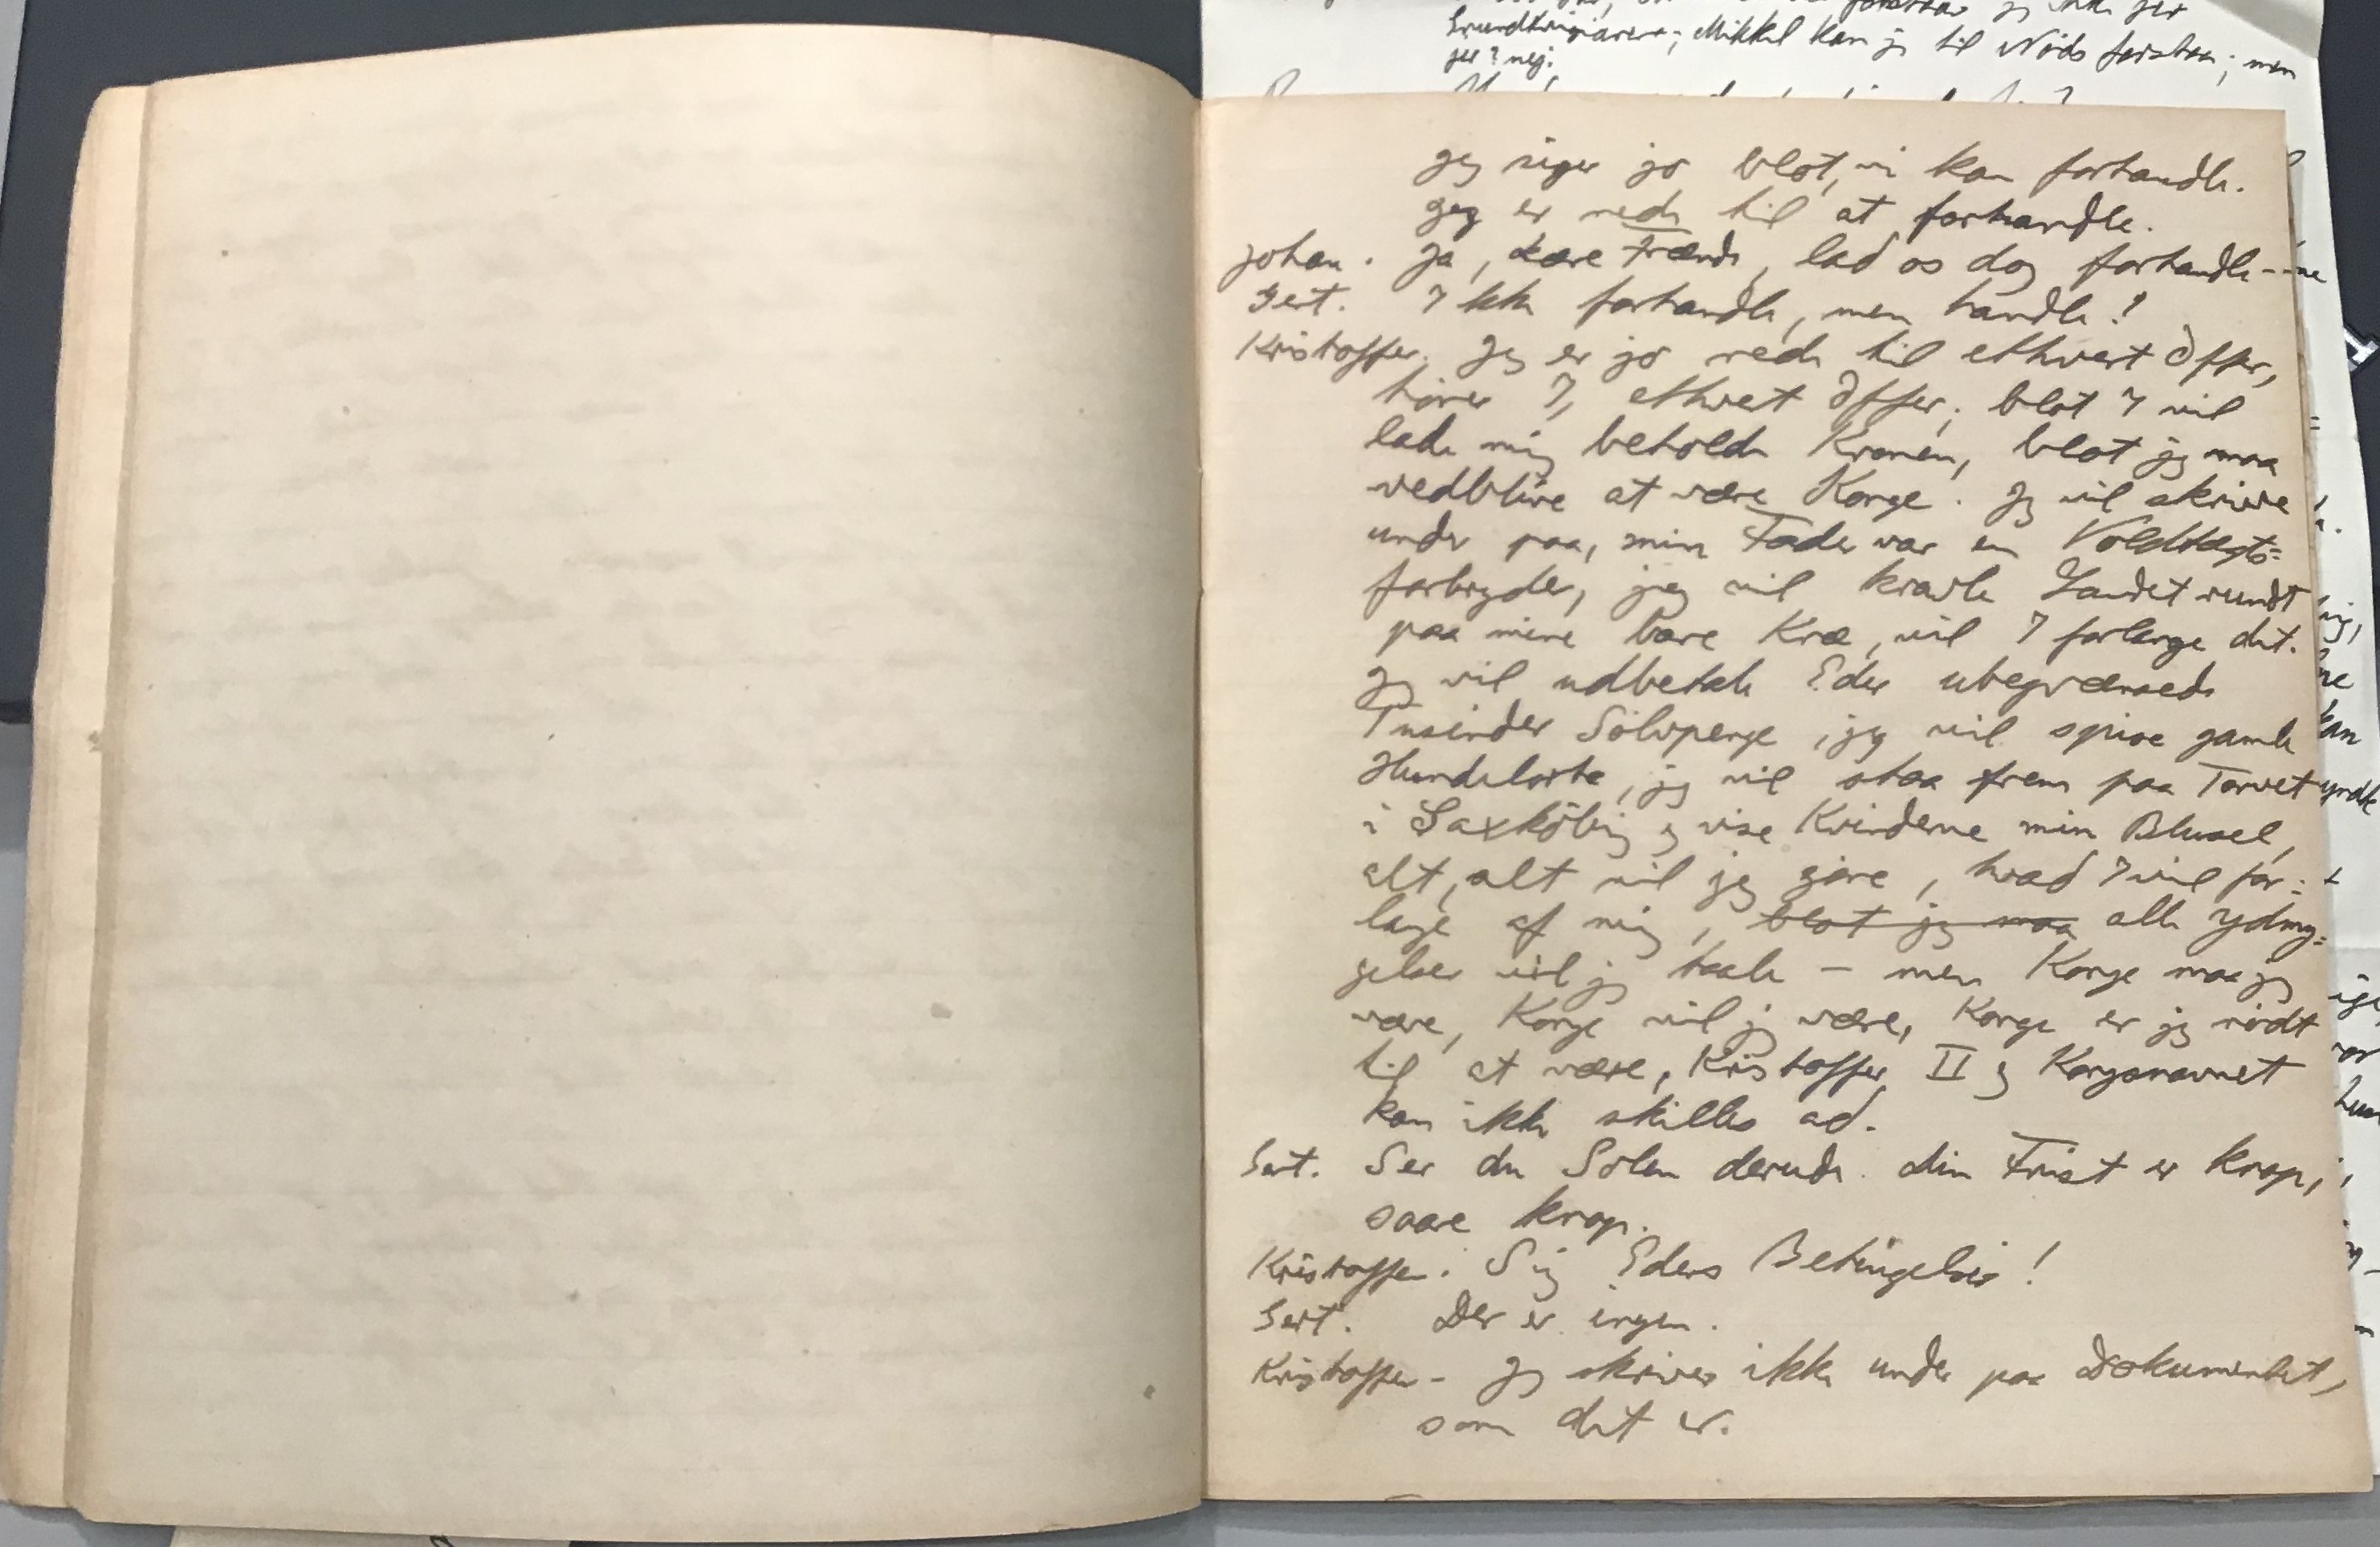 Grundtvigianere; Mikkel kan jeg til Nöds forstaa; men
jer? nej.
Jeg siger jo blot, vi kan forhandle.
Jeg er rede til at forhandle.
Johan. Ja, kære Frænde, lad os dog forhandle--
Gert. Ikke forhandle, men handle!
Kristoffer. Jeg er jo rede til ethvert Offer,
hörer I, ethvert Offer; blot I vil
lade mig beholde Kronen, blot jeg maa
vedblive at være Konge. Jeg vil skrive
under paa, min Fader var en Voldtægts=
forbryder, jeg vil kravle Landet rundt
paa mine bare Knæ, vil I forlange det.
Jeg vil udbetale Eder ubegrænsede
Tusinder Sölvpenge, jeg vil spise gamle
Hundelorte, jeg vil staa frem paa Torvet
i Saxköbing og vise Kvinderne min Blusel,
alt, alt vil jeg göre, hvad I vil for=
lange af mig, blot jeg maa alle Ydmy=
gelser vil jeg taale – men Konge maa jeg
være, Konge vil jeg være, Konge er jeg nödt
til at være, Kristoffer II og Kongenavnet
kan ikke skilles ad.
Gert. Ser du Solen derude. din Frist er knap,
saare knap.
Kristoffer. Sig Eders Betingelser!
Gert. Der er ingen.
Kristoffer – Jeg skriver ikke under paa Dokumentet,
som det er.